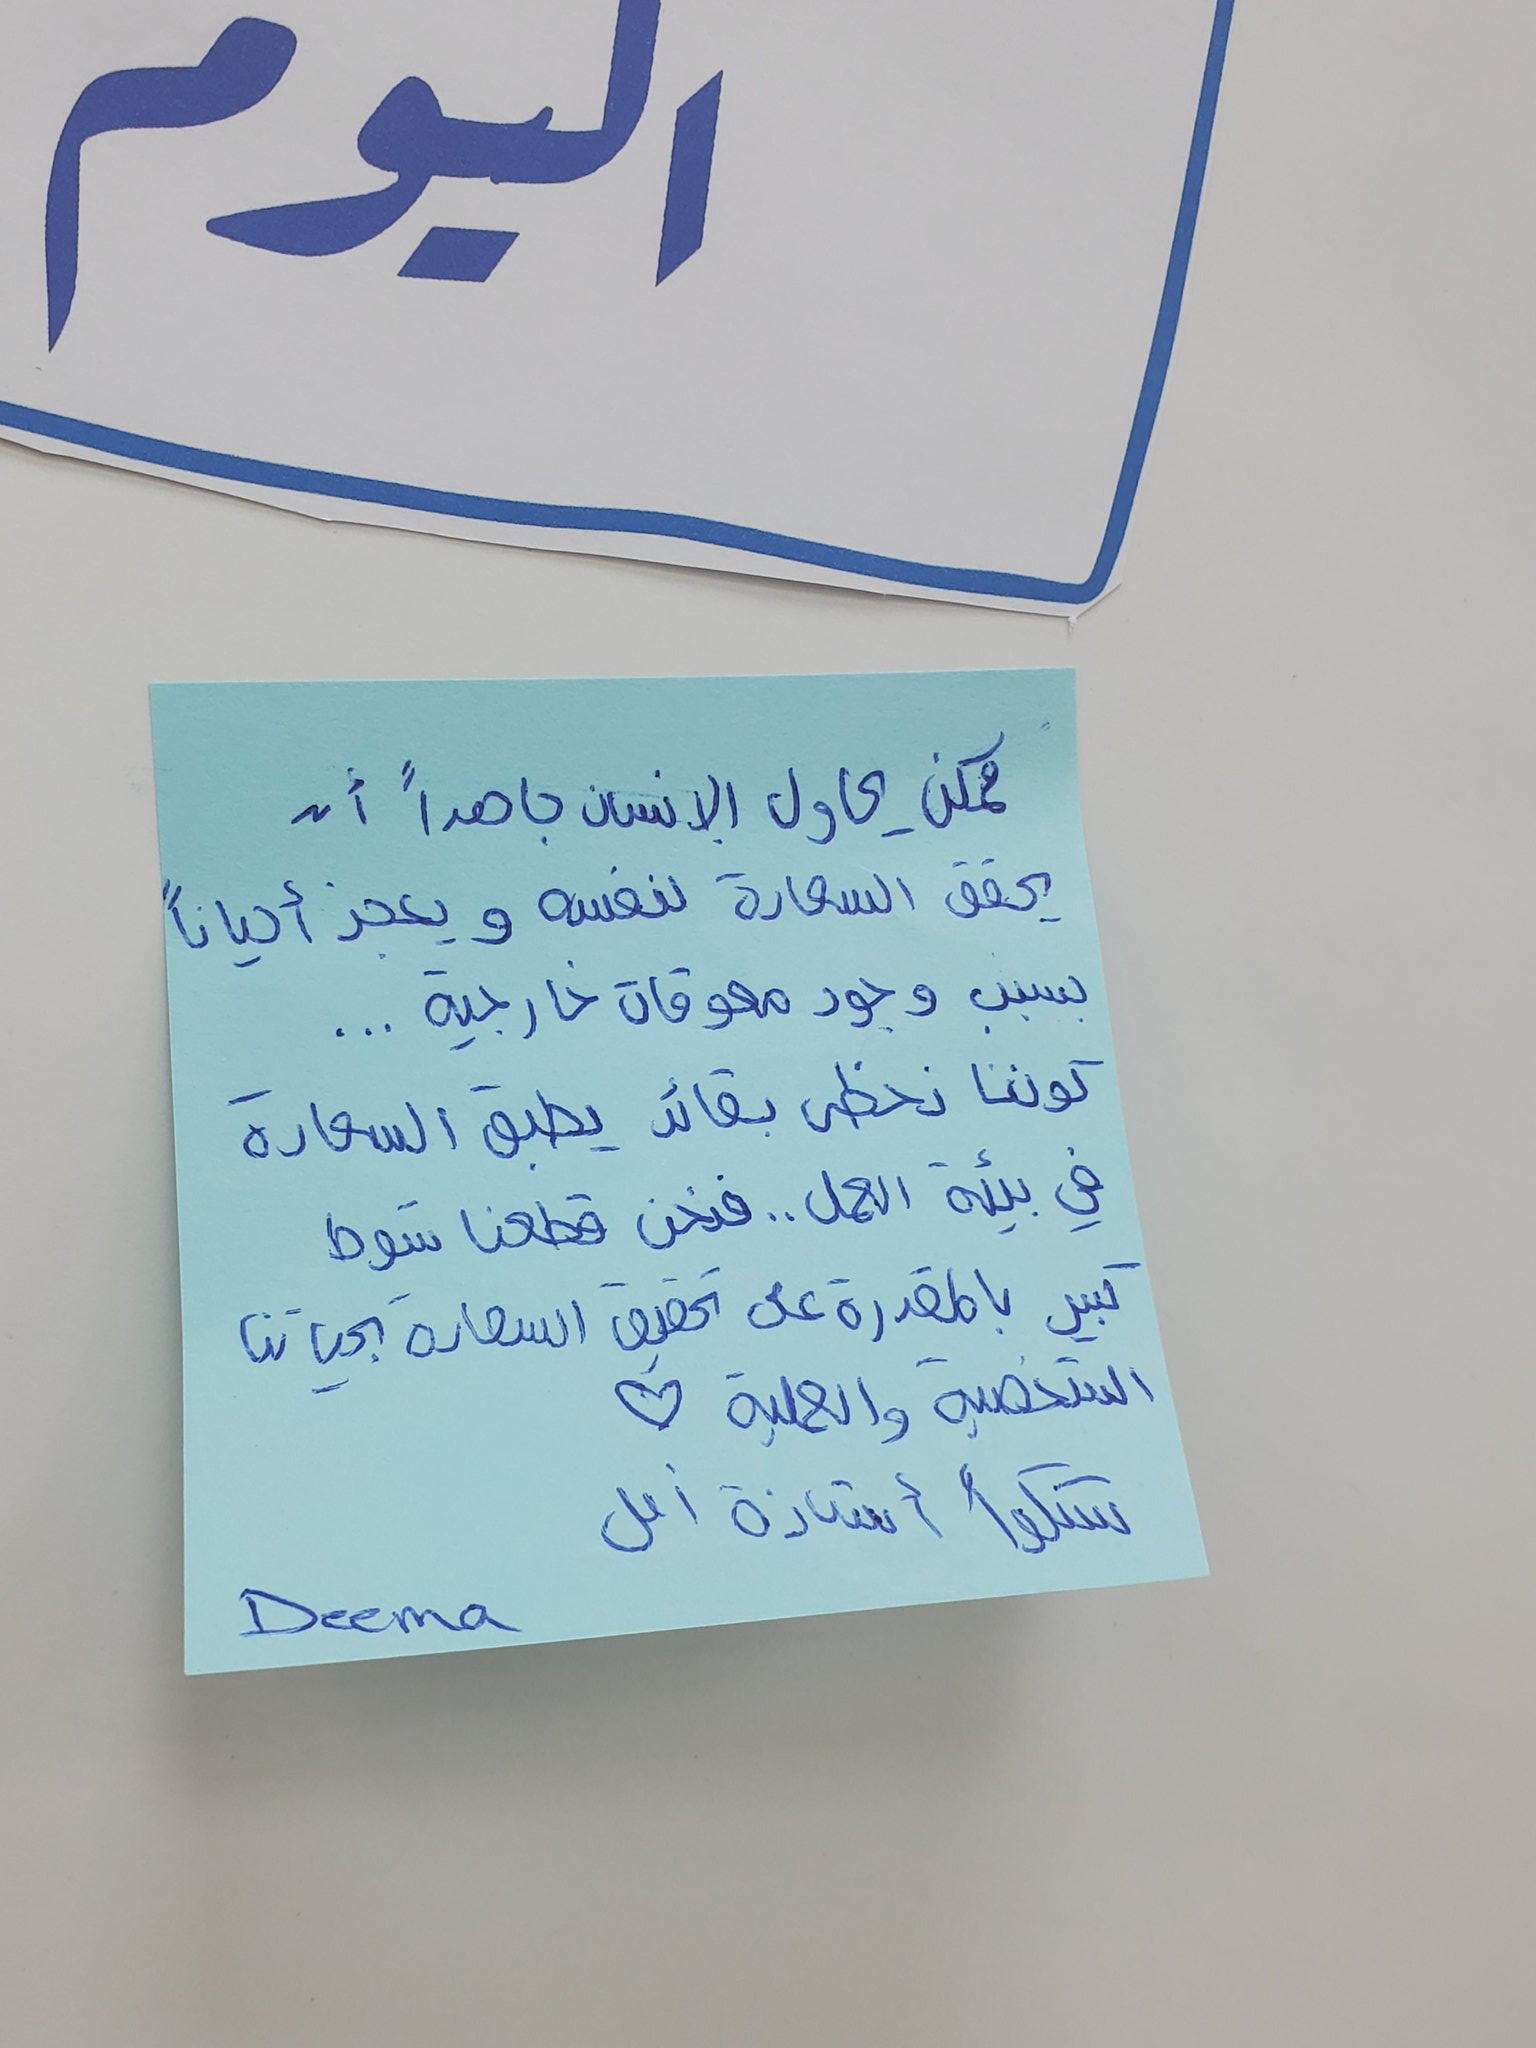 اليوم
ممكن يحاول الإنسان جاهداً أن
يحقق السعادة لنفسه ويعجز أحياناً
بسبب وجود معوقات خارجية ...
كوننا نحظى بقائد يطبق السعادة
في بيئة العمل .. فنحن قطعنا شوط
كبير بالمقدرة على تحقيق السعادة بحياتنا
الشخصية والعملية ♡
شكراً أستاذة أمل
Deema